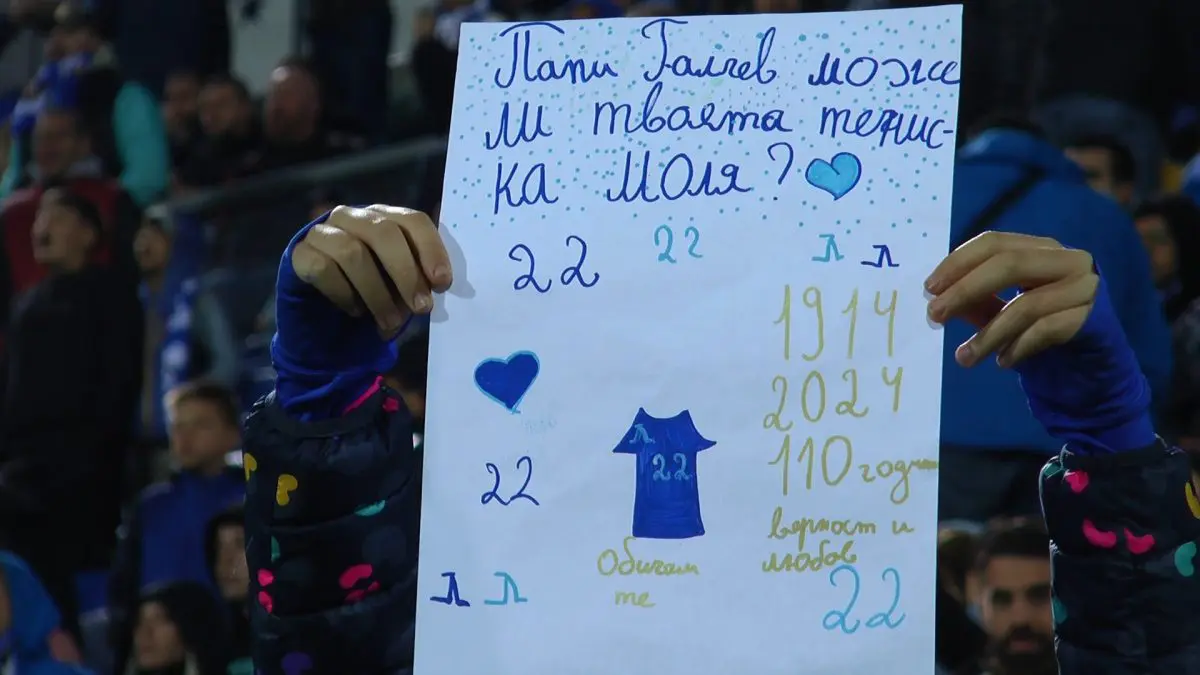 Папи Галчев може
ли твоята тенис-
ка моля?
22
22
Л Л
1914
2024
22
Л
22
110 години
верност и
любов
Обичам
те
Л Л
22